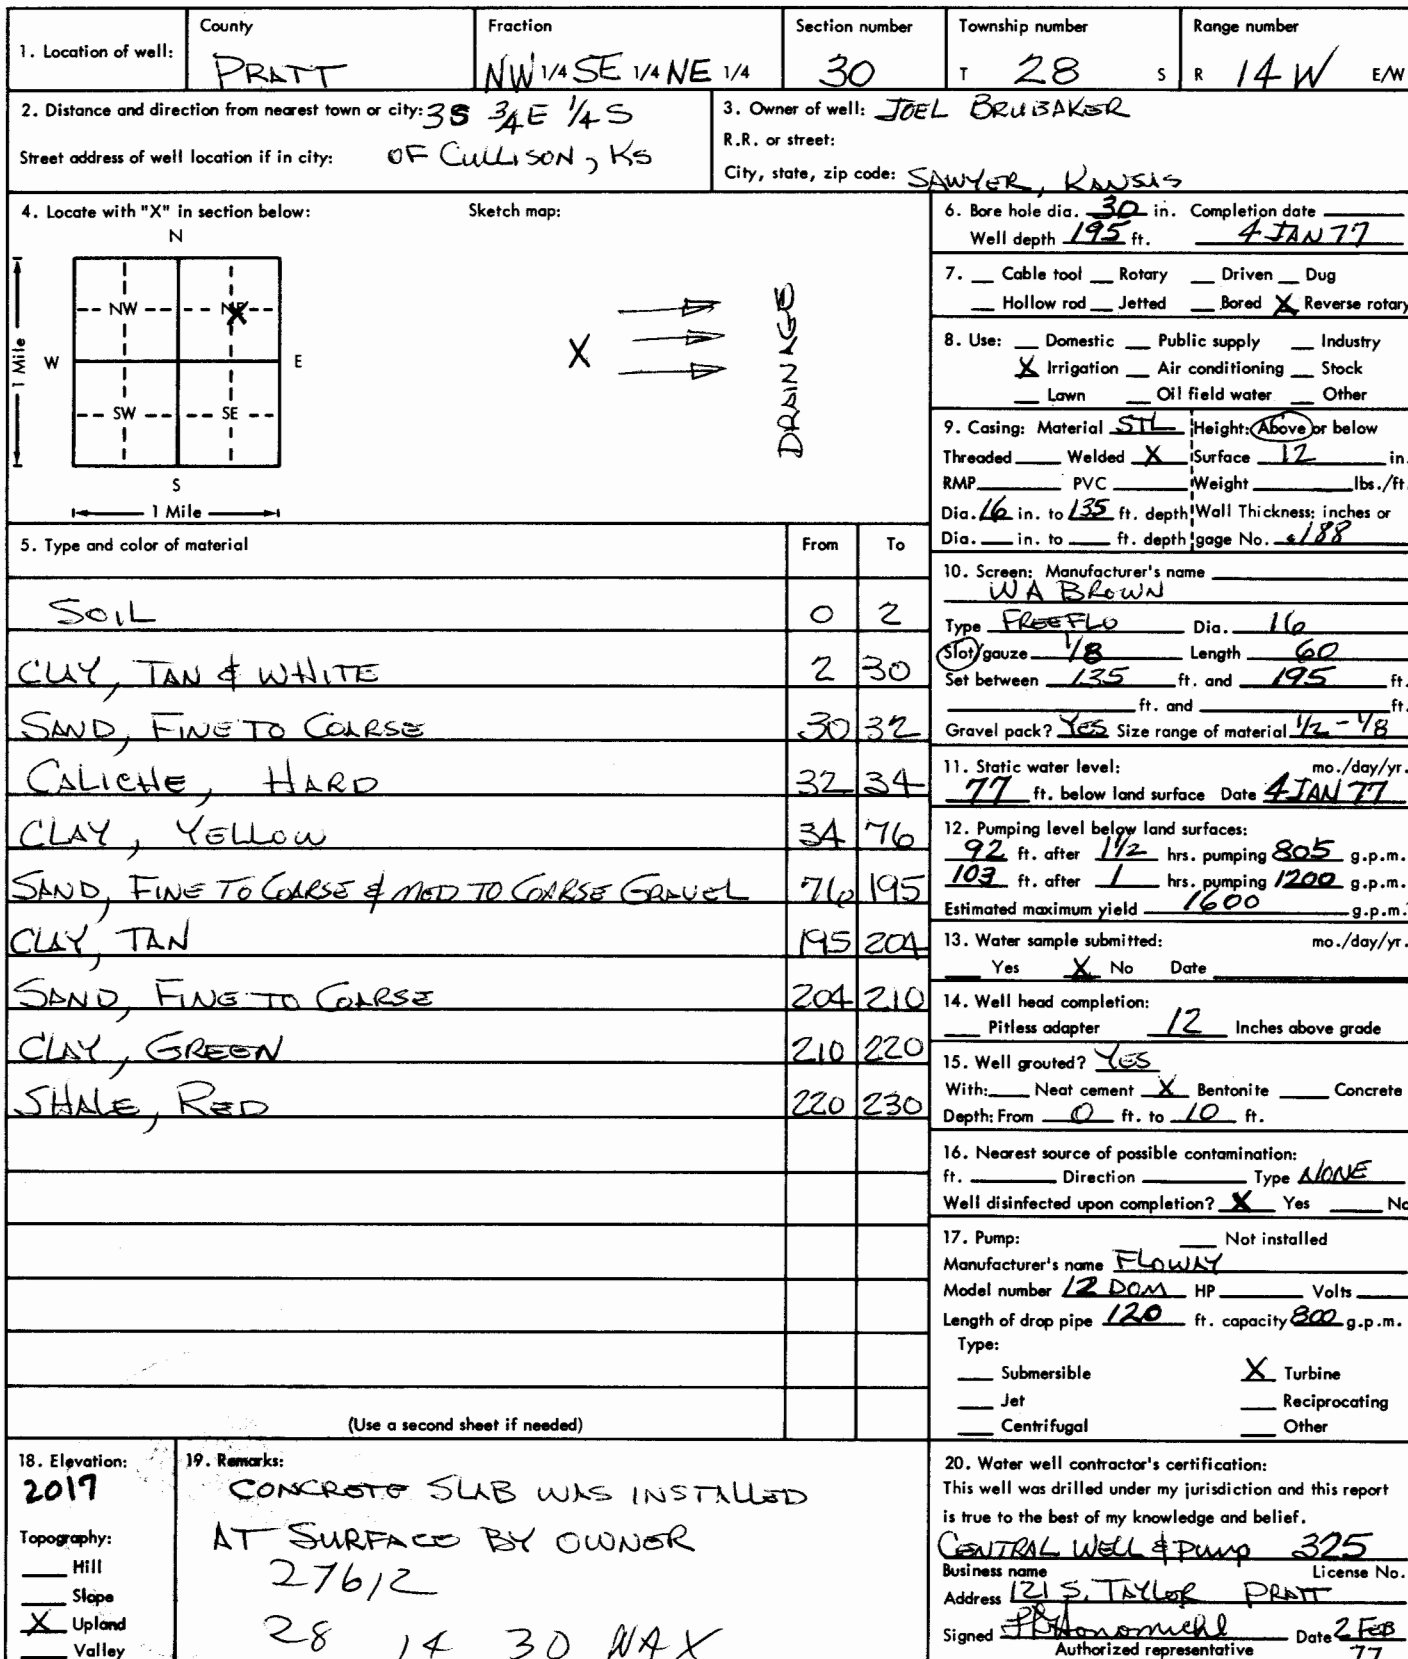 1. Location of well: County PRATT Fraction NW 1/4 SE 1/4 NE 1/4 Section number 30 Township number T 28 S Range number R 14 W E/W
2. Distance and direction from nearest town or city: 3S 3/4E 1/4 S
Street address of well location if in city: OF CULLISON, KS
3. Owner of well: JOEL BRUBAKER
R.R. or street:
City, state, zip code: SAWYER, KANSAS
4. Locate with "X" in section below: Sketch map:
N
NW NE
W E
SW SE
S
1 Mile
1 Mile
X
DRAINAGE
5. Type and color of material From To
SOIL 0 2
CLAY, TAN & WHITE 2 30
SAND, FINE TO COARSE 30 32
CALICHE, HARD 32 34
CLAY, YELLOW 34 76
SAND, FINE TO COARSE & MED TO COARSE GRAVEL 76 195
CLAY, TAN 195 204
SAND, FINE TO COARSE 204 210
CLAY, GREEN 210 220
SHALE, RED 220 230
(Use a second sheet if needed)
6. Bore hole dia. 30 in. Completion date
Well depth 195 ft. 4 JAN 77
7. Cable tool Rotary Driven Dug
Hollow rod Jetted Bored X Reverse rotary
8. Use: Domestic Public supply Industry
X Irrigation Air conditioning Stock
Lawn Oil field water Other
9. Casing: Material STL Height: Above or below
Threaded Welded X Surface 12 in.
RMP PVC Weight lbs./ft.
Dia. 16 in. to 135 ft. depth Wall Thickness: inches or
Dia. in. to ft. depth gage No. .188
10. Screen: Manufacturer's name
WA BROWN
Type FREEFLO Dia. 16
Slot/gauze 1/8 Length 60
Set between 135 ft. and 195 ft.
ft. and ft.
Gravel pack? YES Size range of material 1/2 - 1/8
11. Static water level: mo./day/yr.
77 ft. below land surface Date 4 JAN 77
12. Pumping level below land surfaces:
92 ft. after 1 1/2 hrs. pumping 805 g.p.m.
103 ft. after 1 hrs. pumping 1200 g.p.m.
Estimated maximum yield 1600 g.p.m.
13. Water sample submitted: mo./day/yr.
Yes X No Date
14. Well head completion:
Pitless adapter 12 Inches above grade
15. Well grouted? YES
With: Neat cement X Bentonite Concrete
Depth: From 0 ft. to 10 ft.
16. Nearest source of possible contamination:
ft. Direction Type NONE
Well disinfected upon completion? X Yes No
17. Pump: Not installed
Manufacturer's name FLOWAY
Model number 12 DOM HP Volts
Length of drop pipe 120 ft. capacity 800 g.p.m.
Type:
Submersible X Turbine
Jet Reciprocating
Centrifugal Other
18. Elevation:
2017
Topography:
Hill
Slope
X Upland
Valley
19. Remarks:
CONCRETE SLAB WAS INSTALLED
AT SURFACE BY OWNER
27612
28 14 30 NAX
20. Water well contractor's certification:
This well was drilled under my jurisdiction and this report
is true to the best of my knowledge and belief.
CENTRAL WELL & PUMP 325
Business name License No.
Address 121 S. TAYLOR PRATT
Signed Honomichl Date 2 FEB
Authorized representative 77